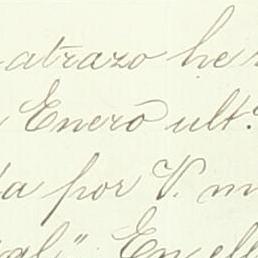 atrazo he
Enero ult.
por V. m
al" En ell